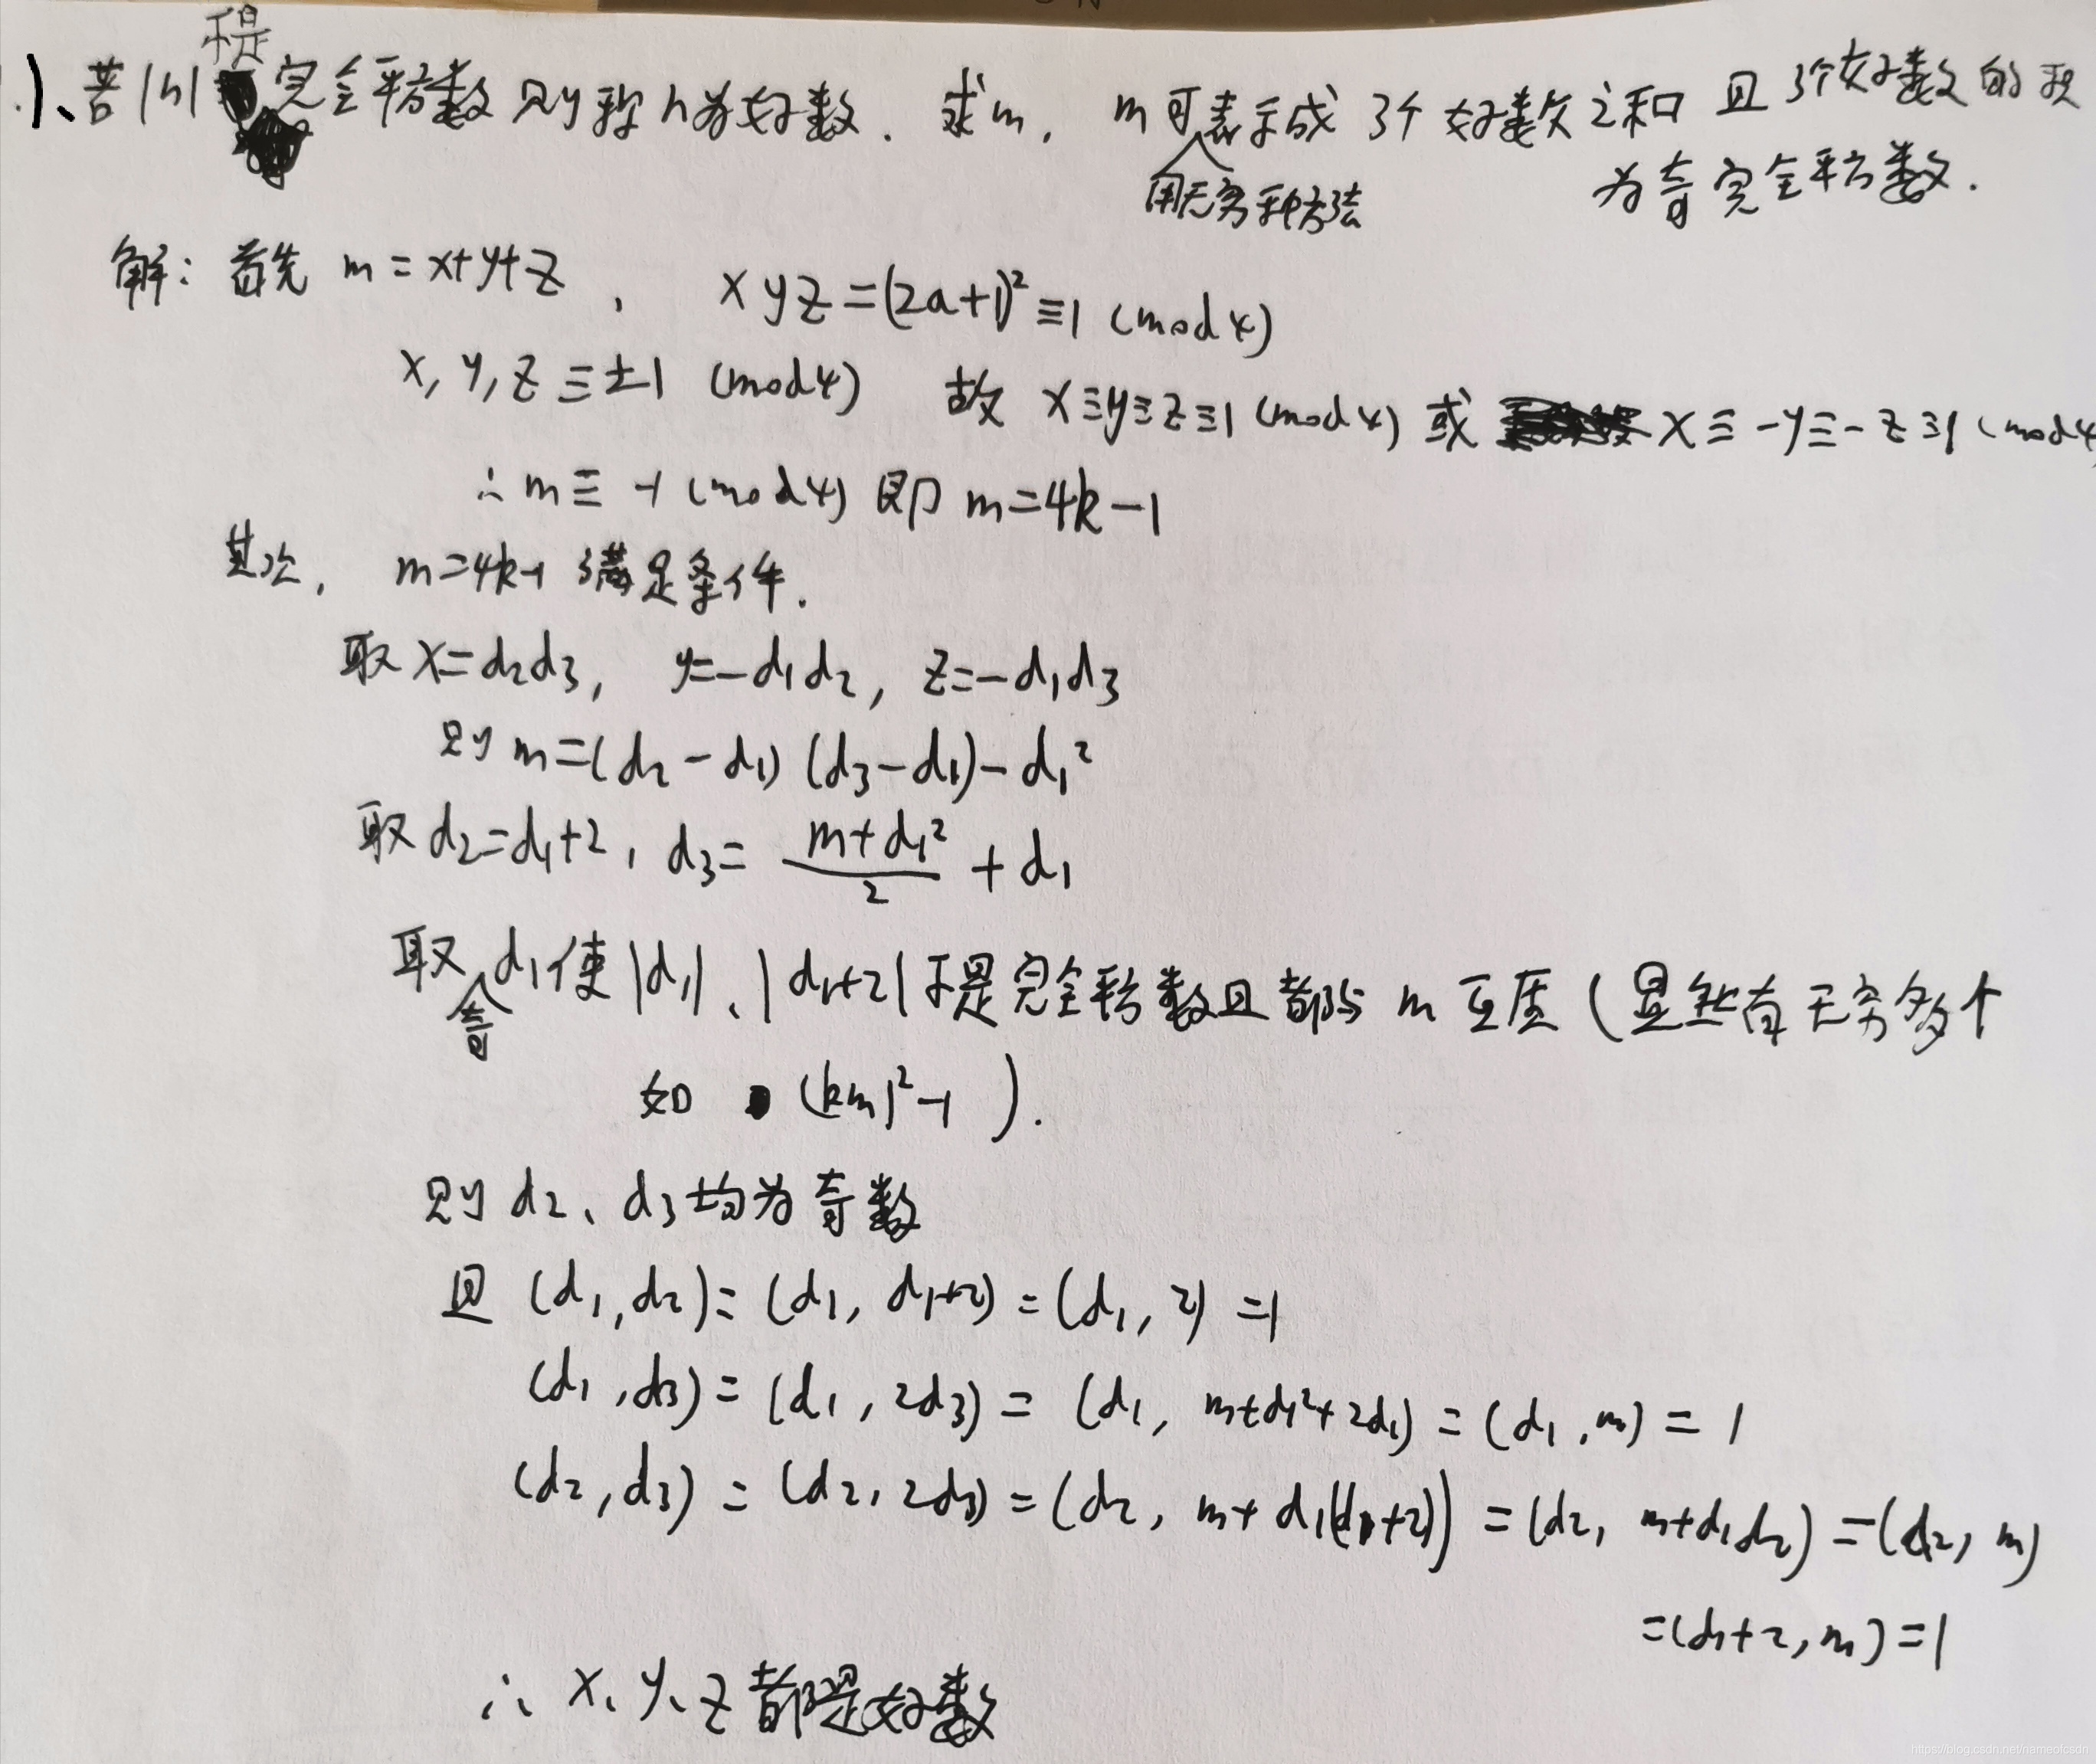 1、若|n|不是完全平方数则称n为好数. 求m, m可用无穷种方法表示成3个好数之和且3个好数的积
为奇完全平方数.
解: 首先 m=x+y+z, xyz=(2a+1)²≡1 (mod 4)
x, y, z≡±1 (mod4) 故 x≡y≡z≡1 (mod 4) 或 x≡-y≡-z≡1 (mod 4
∴m≡-1 (mod 4) 即 m=4k-1
其次, m=4k-1 满足条件.
取 x=d₂d₃, y=-d₁d₂, z=-d₁d₃
则 m=(d₂-d₁)(d₃-d₁)-d₁²
取 d₂=d₁+2, d₃=(m+d₁²)/2+d₁
取奇d₁使|d₁|、|d₁+2|不是完全平方数且都与m互质(显然有无穷多个
如 (km)²-1 ).
则 d₂、d₃均为奇数
且 (d₁,d₂)=(d₁, d₁+2)=(d₁, 2)=1
(d₁,d₃)=(d₁, 2d₃)=(d₁, m+d₁²+2d₁)=(d₁,m)=1
(d₂,d₃)=(d₂, 2d₃)=(d₂, m+d₁(d₁+2))=(d₂, m+d₁d₂)=(d₂, m)
=(d₁+2, m)=1
∴ x、y、z都是好数
https://blog.csdn.net/nameofcsdn